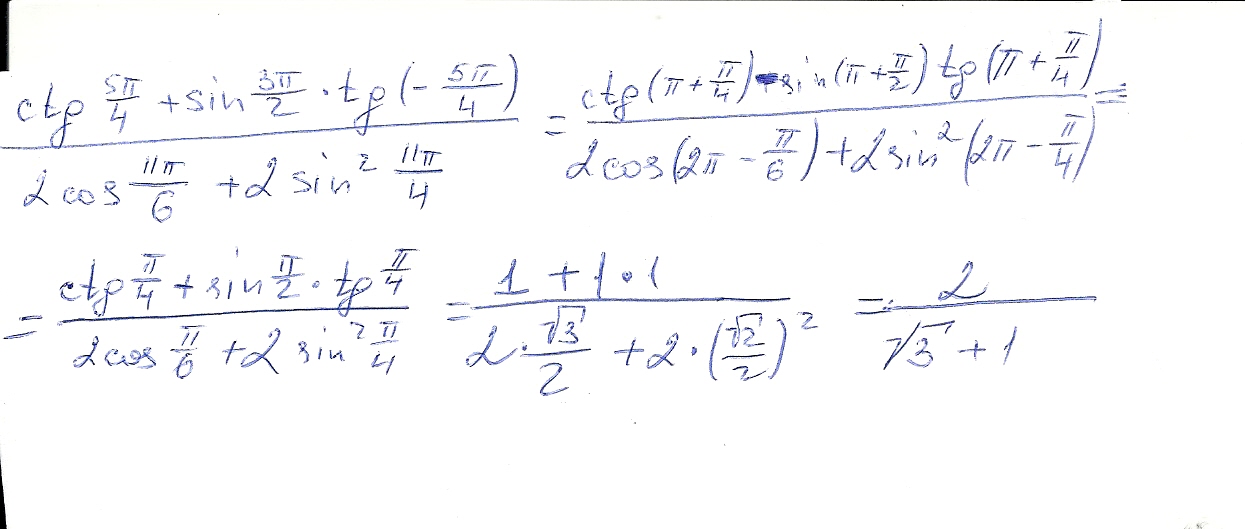 (ctg 5π/4 + sin 3π/2 · tg(- 5π/4)) / (2 cos 11π/6 + 2 sin² 11π/4) = (ctg(π + π/4) - sin(π + π/2) tg(π + π/4)) / (2 cos(2π - π/6) + 2 sin²(2π - π/4)) =
= (ctg π/4 + sin π/2 · tg π/4) / (2 cos π/6 + 2 sin² π/4) = (1 + 1 · 1) / (2 · √3/2 + 2 · (√2/2)²) = 2 / (√3 + 1)